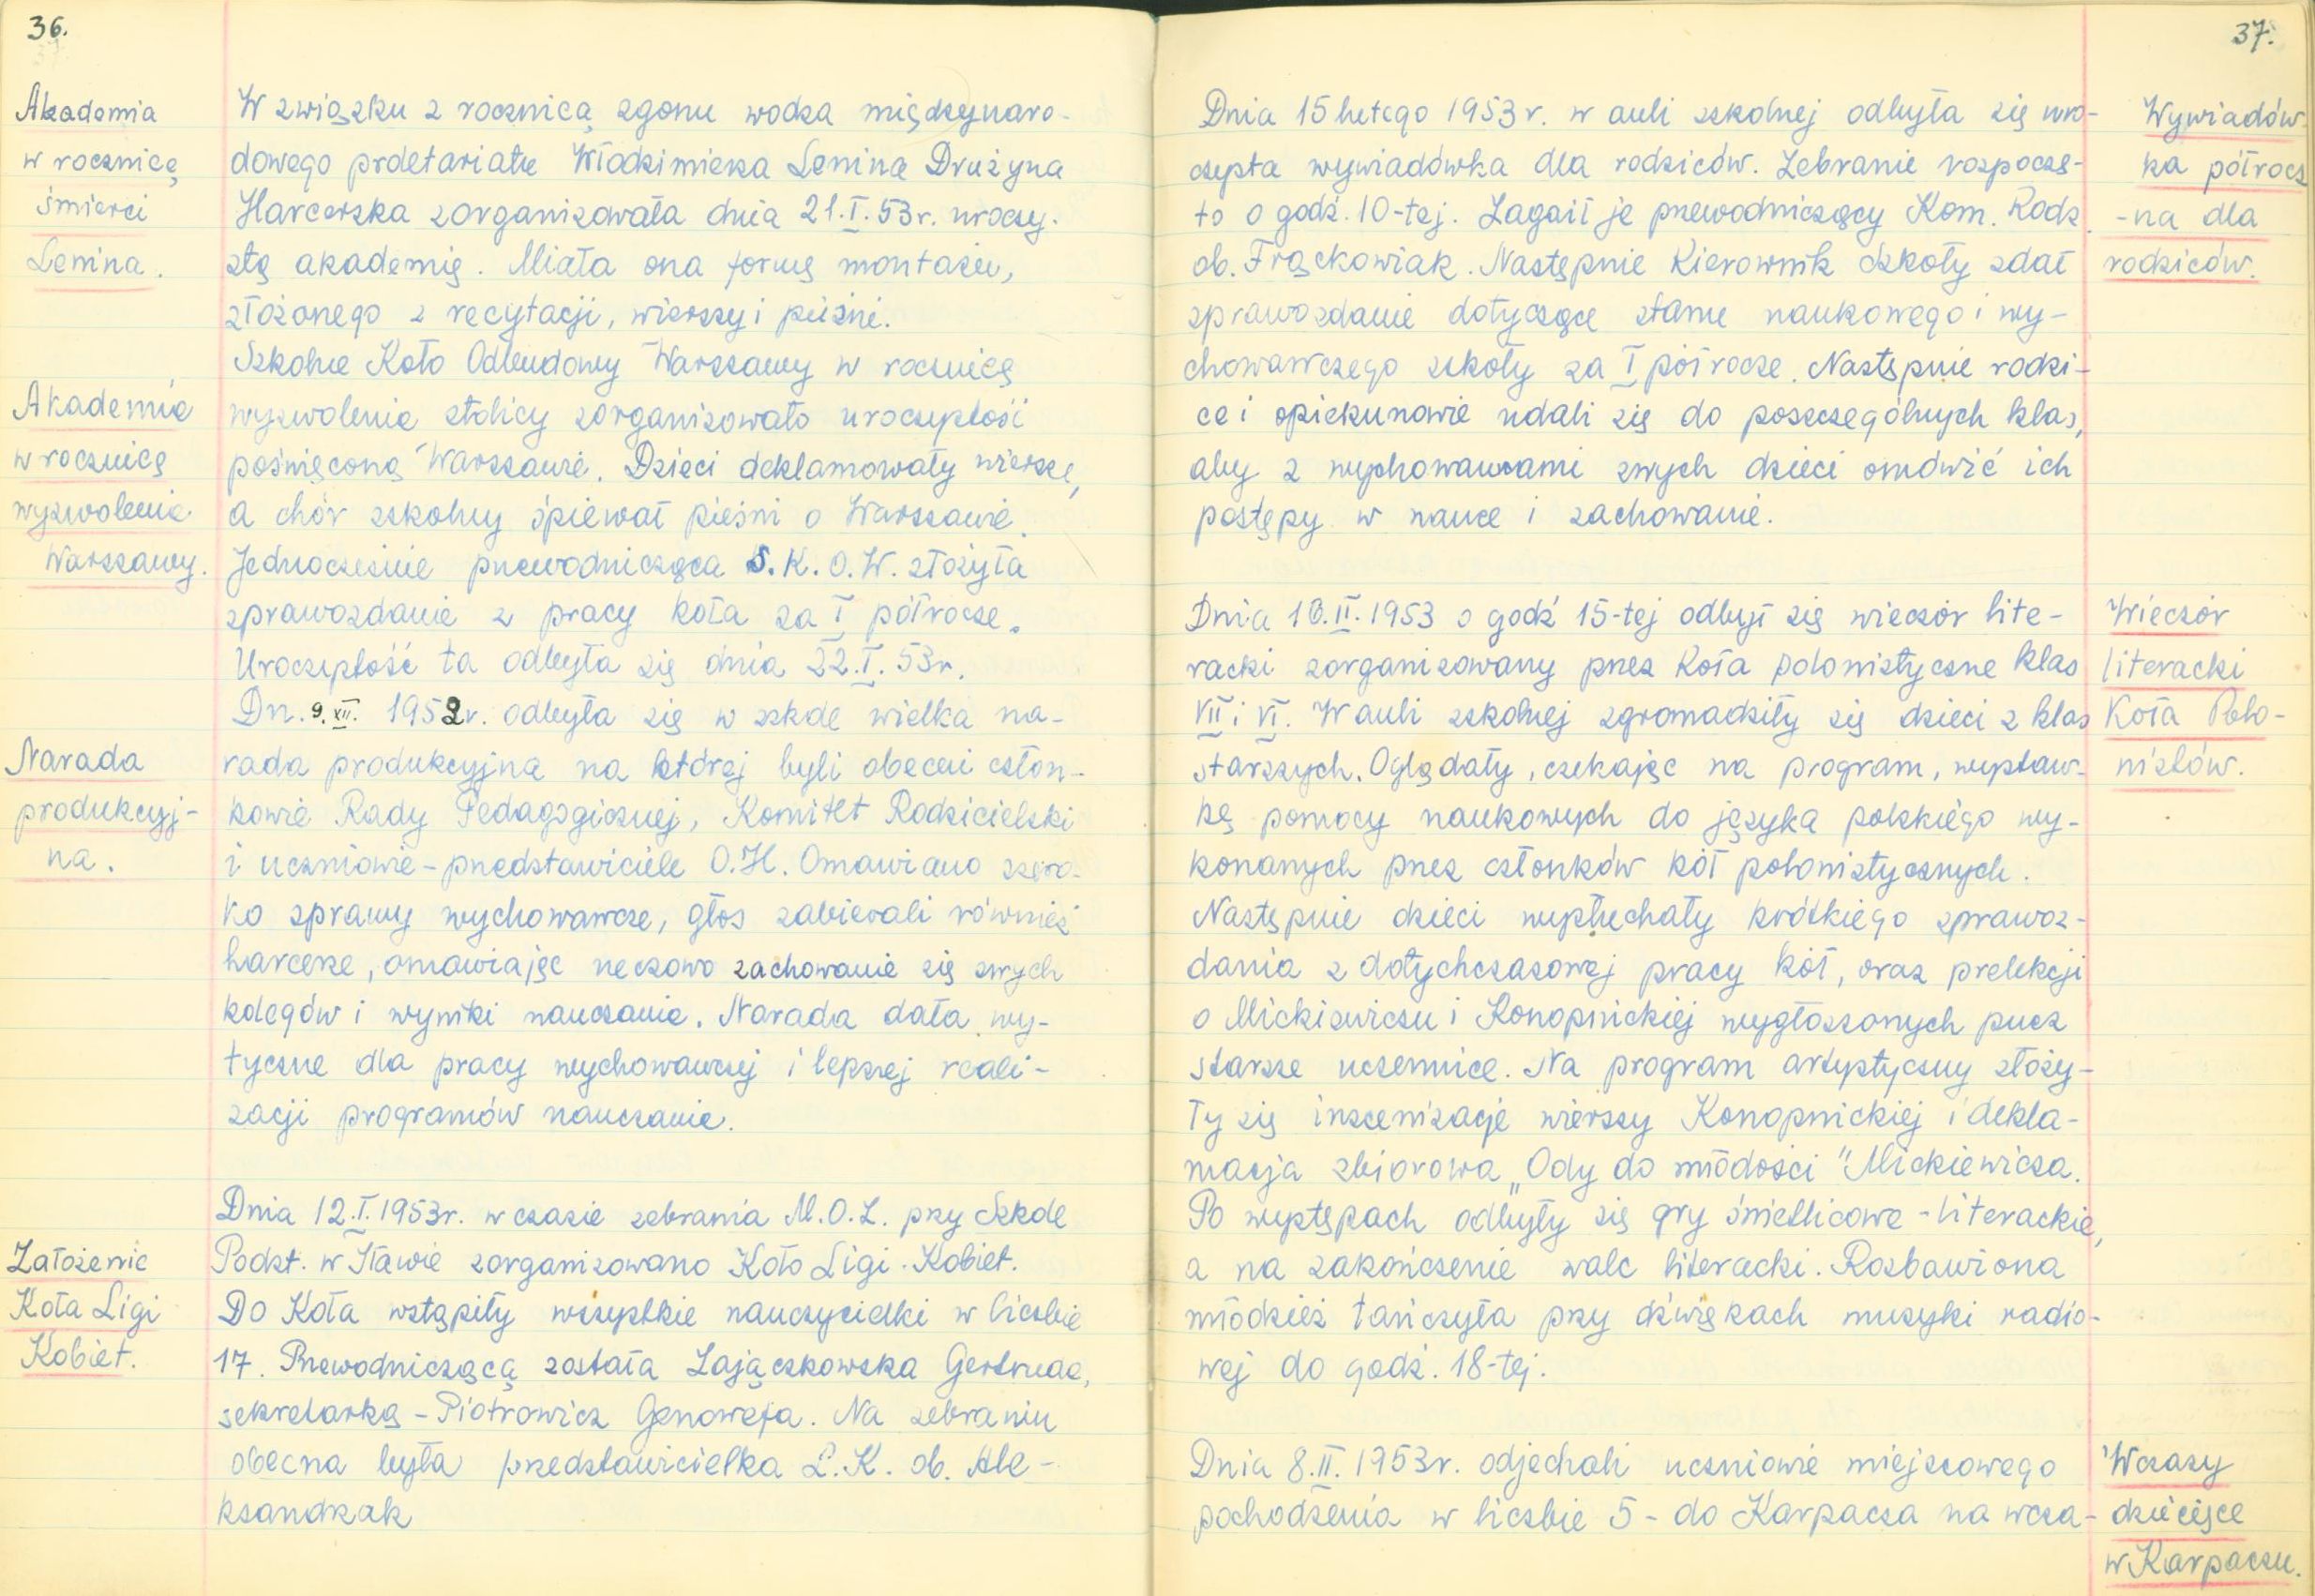 36.
Akademia
w rocznicę
śmierci
Lenina.
W związku z rocznicą zgonu wodza międzynaro-
dowego proletariatu Włodzimierza Lenina Drużyna
Harcerska zorganizowała dnia 21.I.53r. uroczy-
stą akademię. Miała ona formę montażu,
złożonego z recytacji, wierszy i pieśni.
Szkolne Koło Odbudowy Warszawy w rocznicę
Akademia
w rocznicę
wyzwolenia
Warszawy.
wyzwolenia stolicy zorganizowało uroczystość
poświęconą Warszawie. Dzieci deklamowały wiersze,
a chór szkolny śpiewał pieśni o Warszawie.
Jednocześnie przewodnicząca S.K.O.W. złożyła
sprawozdanie z pracy koła za I półrocze.
Uroczystość ta odbyła się dnia 22.I.53r.
Dn. 9.XII. 1952r. odbyła się w szkole wielka na-
Narada
produkcyj-
na.
rada produkcyjna na której byli obecni człon-
kowie Rady Pedagogicznej, Komitet Rodzicielski
i uczniowie - przedstawiciele O.H. Omawiano szero-
ko sprawy wychowawcze, głos zabierali również
harcerze, omawiając rzeczowo zachowanie się swych
kolegów i wyniki nauczania. Narada dała wy-
tyczne dla pracy wychowawczej i lepszej reali-
zacji programów nauczania.
Założenie
Koła Ligi
Kobiet.
Dnia 12.I.1953r. w czasie zebrania M.O.Z. przy Szkole
Podst. w Iławie zorganizowano Koło Ligi Kobiet.
Do Koła wstąpiły wszystkie nauczycielki w liczbie
17. Przewodniczącą została Zajączkowska Gertruda,
sekretarką - Piotrowicz Genowefa. Na zebraniu
obecna była przedstawicielka L.K. ob. Ale-
ksandrzak
37.
Wywiadów-
ka półrocz
-na dla
rodziców.
Dnia 15 lutego 1953r. w auli szkolnej odbyła się uro-
czysta wywiadówka dla rodziców. Zebranie rozpoczę-
to o godz. 10-tej. Zagaił je przewodniczący Kom. Rodz.
ob. Frąckowiak. Następnie Kierownik Szkoły zdał
sprawozdanie dotyczące stanu naukowego i wy-
chowawczego szkoły za I półrocze. Następnie rodzi-
ce i opiekunowie udali się do poszczególnych klas,
aby z wychowawcami swych dzieci omówić ich
postępy w nauce i zachowanie.
Wieczór
literacki
Koła Polo-
nistów.
Dnia 10.II.1953 o godź 15-tej odbył się wieczór lite-
racki zorganizowany przez Koła polonistyczne klas
VII i VI. W auli szkolnej zgromadziły się dzieci z klas
starszych. Oglądały, czekając na program, wystaw-
kę pomocy naukowych do języka polskiego wy-
konanych przez członków kół polonistycznych.
Następnie dzieci wysłuchały krótkiego sprawoz-
dania z dotychczasowej pracy kół, oraz prelekcji
o Mickiewiczu i Konopnickiej wygłoszonych przez
starsze uczennice. Na program artystyczny złoży-
ły się inscenizacje wierszy Konopnickiej i dekla-
macja zbiorowa „Ody do młodości" Mickiewicza.
Po występach odbyły się gry świetlicowe - literackie,
a na zakończenie walc literacki. Rozbawiona
młodzież tańczyła przy dźwiękach muzyki radio-
wej do godź. 18-tej.
Wczasy
dziecięce
w Karpaczu.
Dnia 8.II.1953r. odjechali uczniowie miejscowego
pochodzenia w liczbie 5 - do Karpacza na wcza-